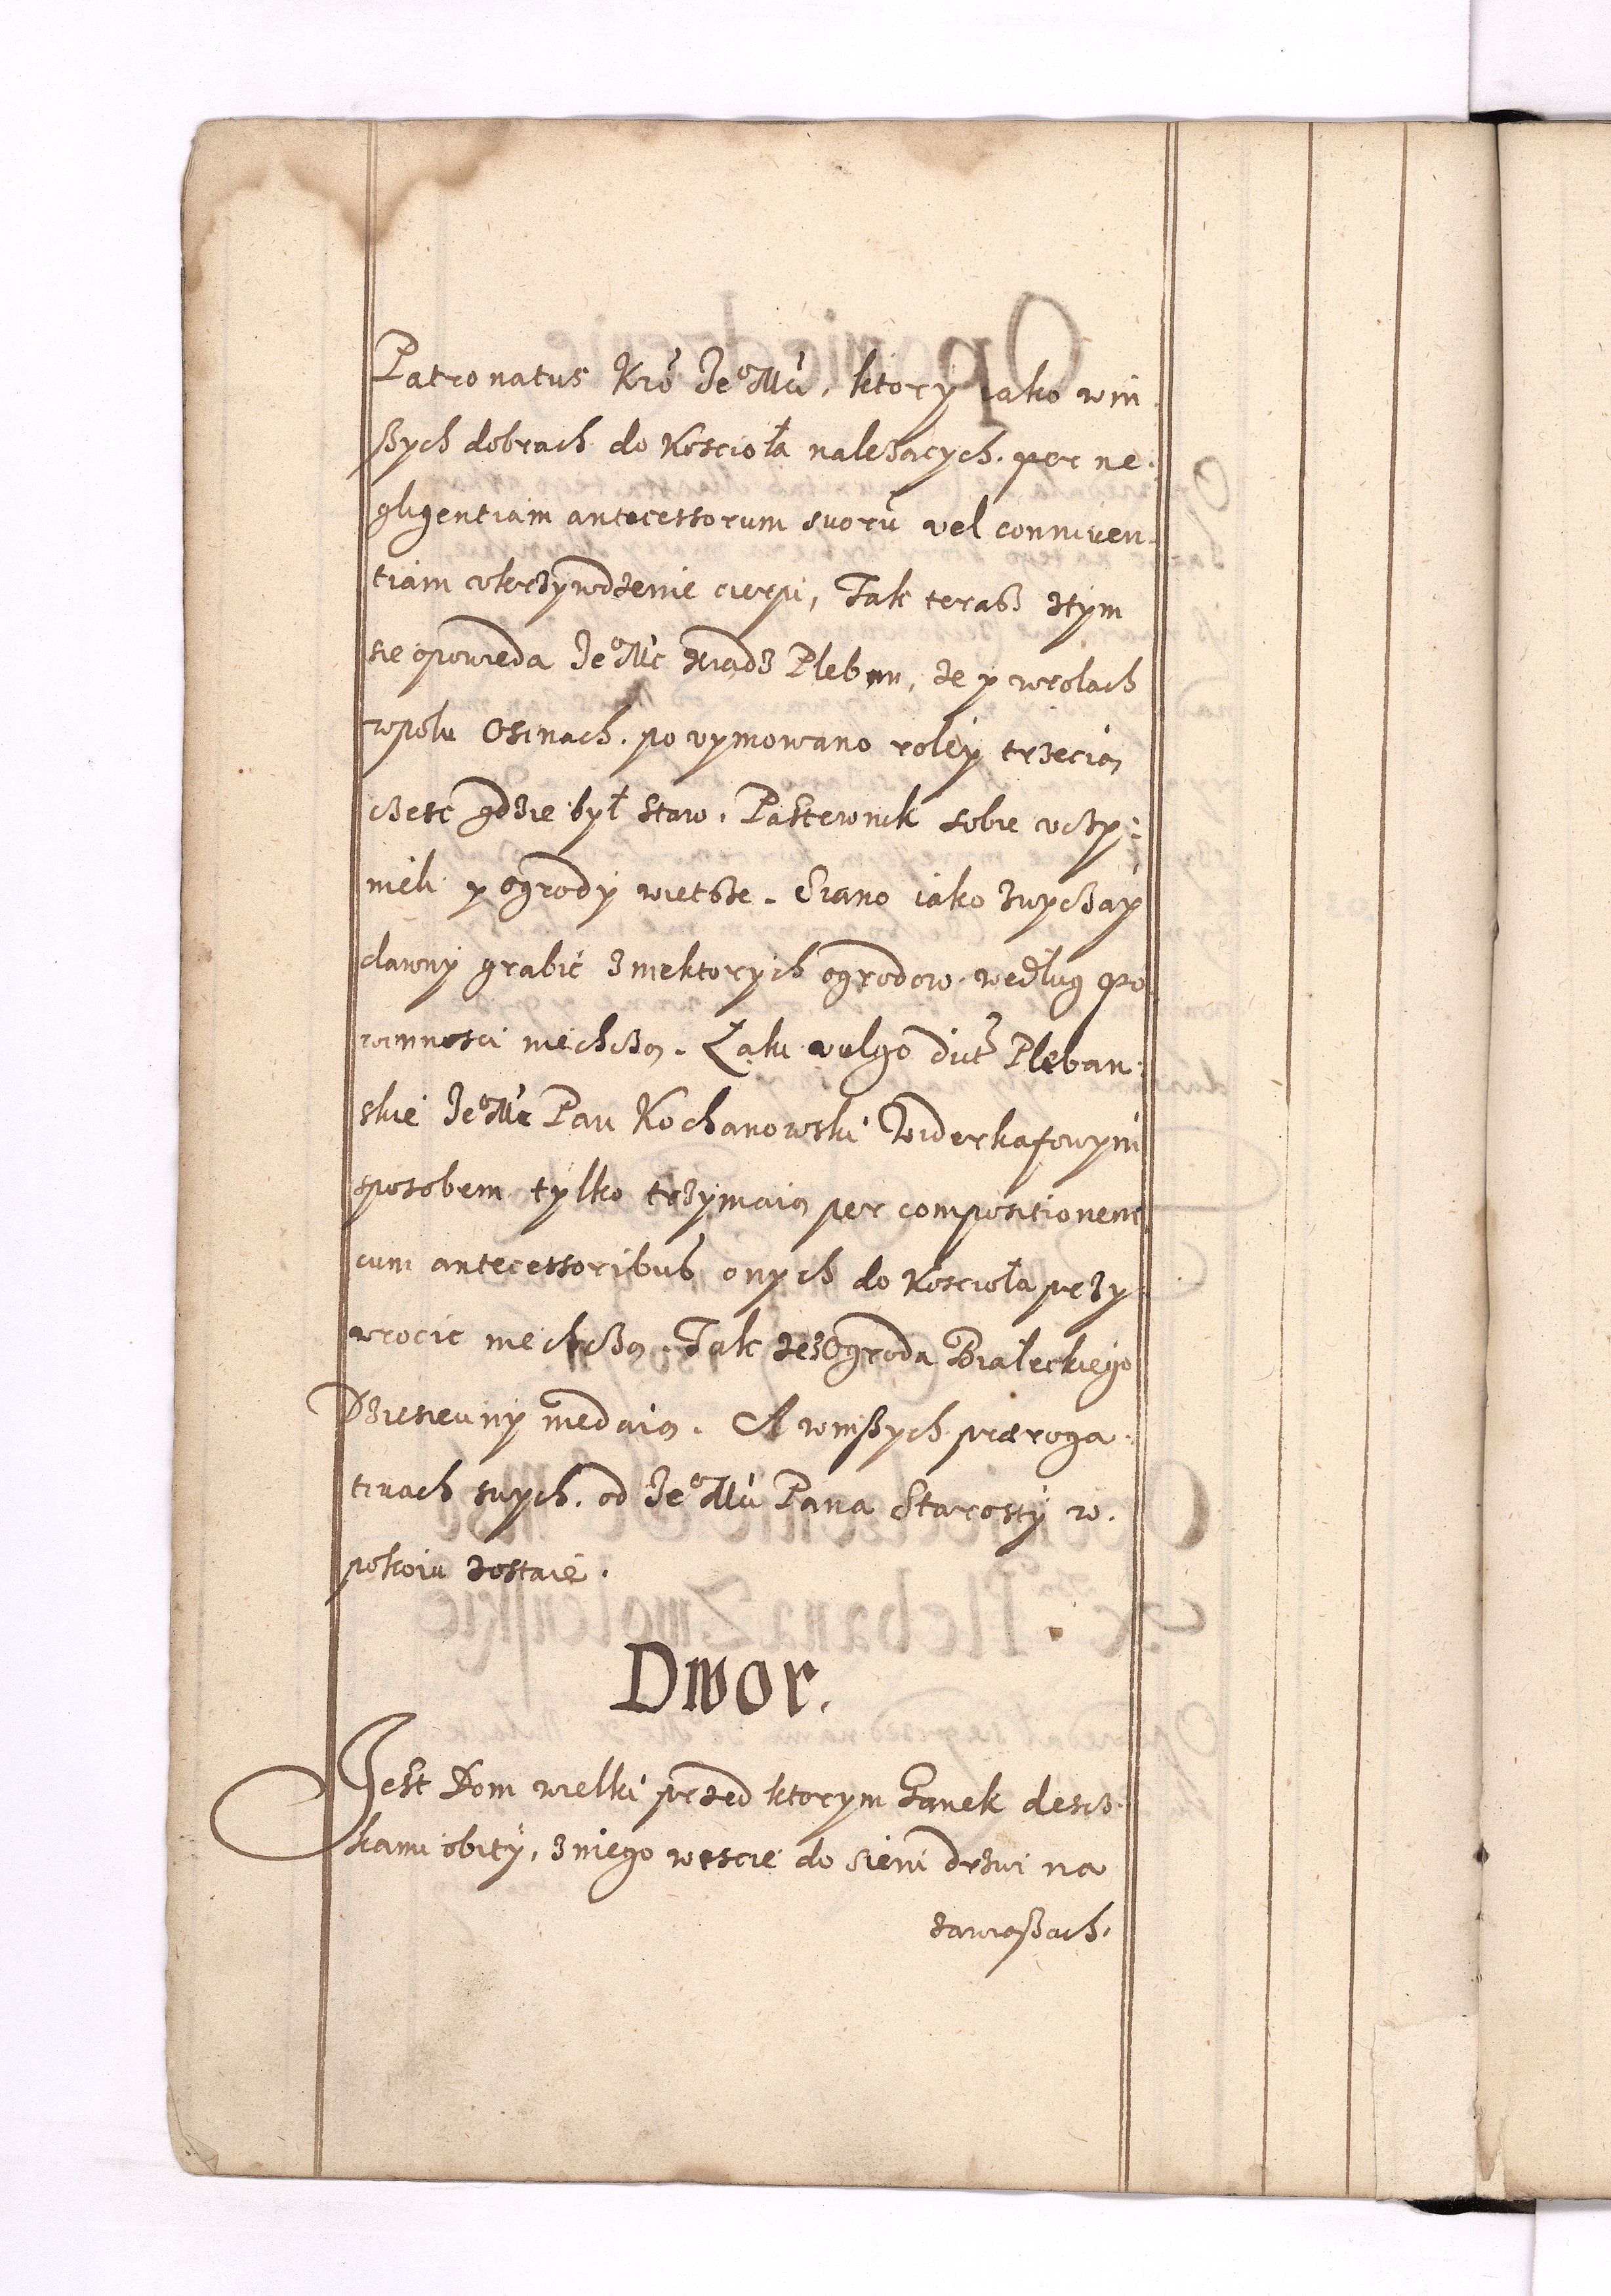 Patronatus Kro Je⁰Mci, ktory iako win
szych dobrach do Koscioła należacych. per ne:
gligentiam antecessorum suorū vel conniven
tiam vkrzywdzenie cierpi, Tak terasz ztym
sie opowieda Je⁰Mc Xiadz Pleban, że y wrolach
wpolu Osinach. po vymowano roley trzecią
czesc gdzie był staw. Pastewnik sobie vczy:
nieli y ogrody wietsze. Siano iako zwyczay
dawny grabic z niektorych ogrodow według po
winnosci niechczą. Łąki vulgo dict Pleban:
skie Je⁰Mc Pan Kochanowski Widerkafowym
sposobem tylko trzymaią per compositionem
cum antecessoribus onych do Koscioła przy
wrocic niechczą. Tak też Ogroda Białeckiego
Dziesieciny niedaią. A winszych præroga:
tivach swych. od Je⁰Mci Pana Starosty w.
pokoiu zostaie.
Dwor.
Jest Dom wielki przed ktorym Ganek descz
kami obity, z niego wescie do sieni drzwi na
zawiaszach.